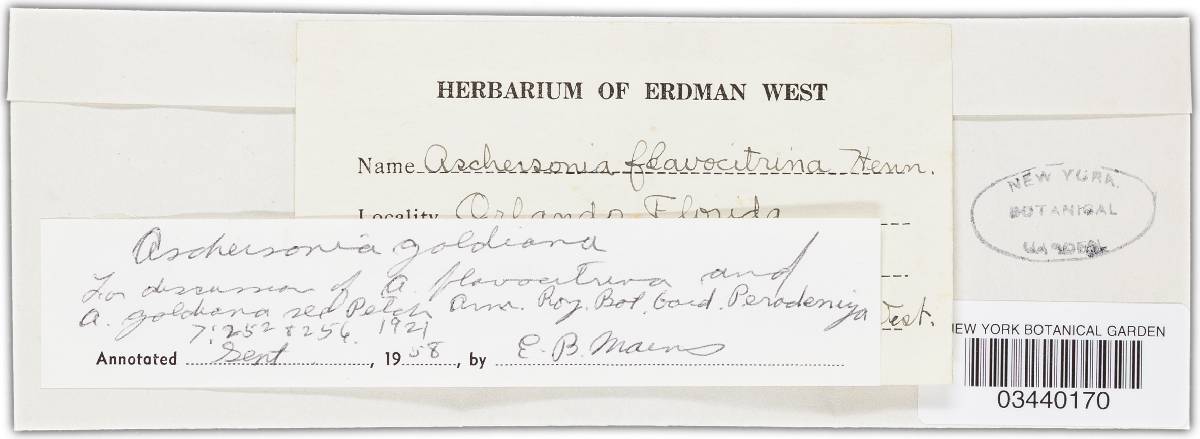 HERBARIUM OF ERDMAN WEST
Name Aschersonia flavocitrina Henn.
Locality Orlando, Florida
West.
Aschersonia goldiana
For discussion of A. flavocitrina and
A. goldiana see Petch Ann. Roy. Bot. Gard. Peradeniya
7: 252 & 256. 1921
Annotated Sept, 1958, by E. B. Mains
NEW YORK
BOTANICAL
GARDEN
NEW YORK BOTANICAL GARDEN
03440170